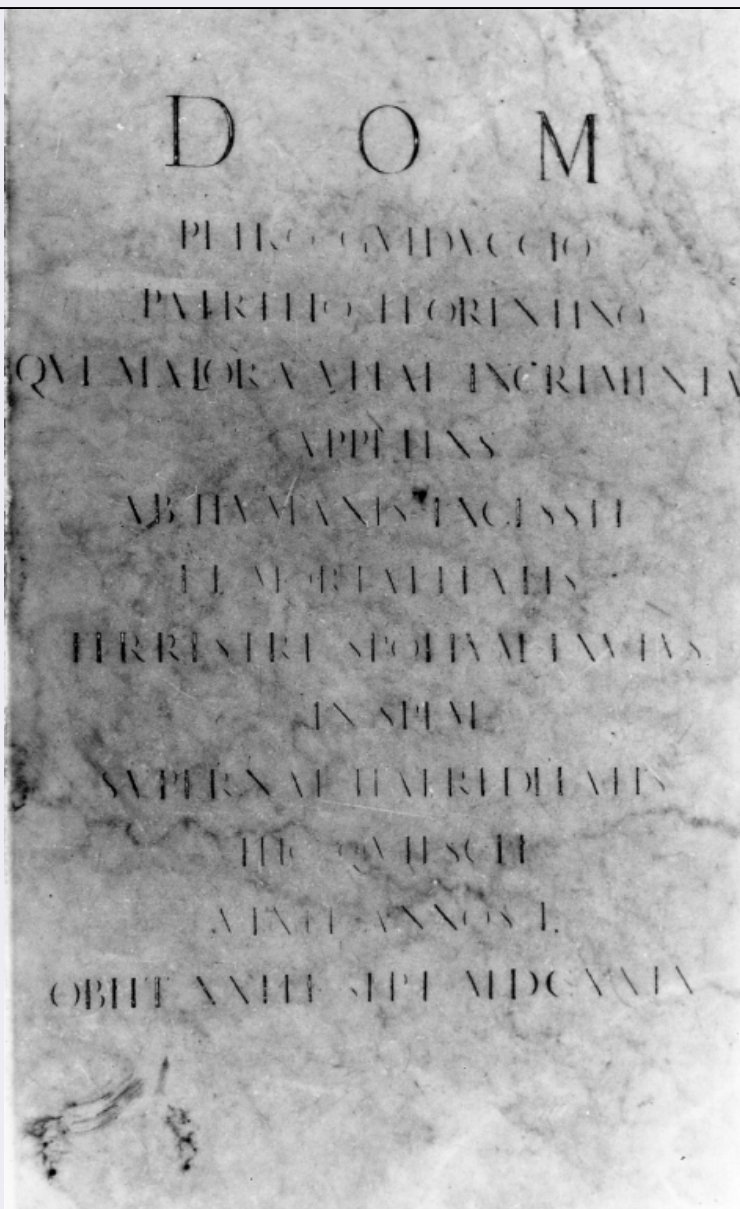 D O M
PETRO GVIDVCCIO
PATRITIO FLORENTINO
QVI MAIORA VITAE INCREMENTA
APPETENS
AB HVMANIS EXCESSIT
ET MORTALITATIS
TERRESTRE SPOLIVM EXVTVS
IN SPEM
SVPERNAE HAEREDITATIS
HIC QVIESCIT
VIXIT ANNOS L
OBIIT SEPT